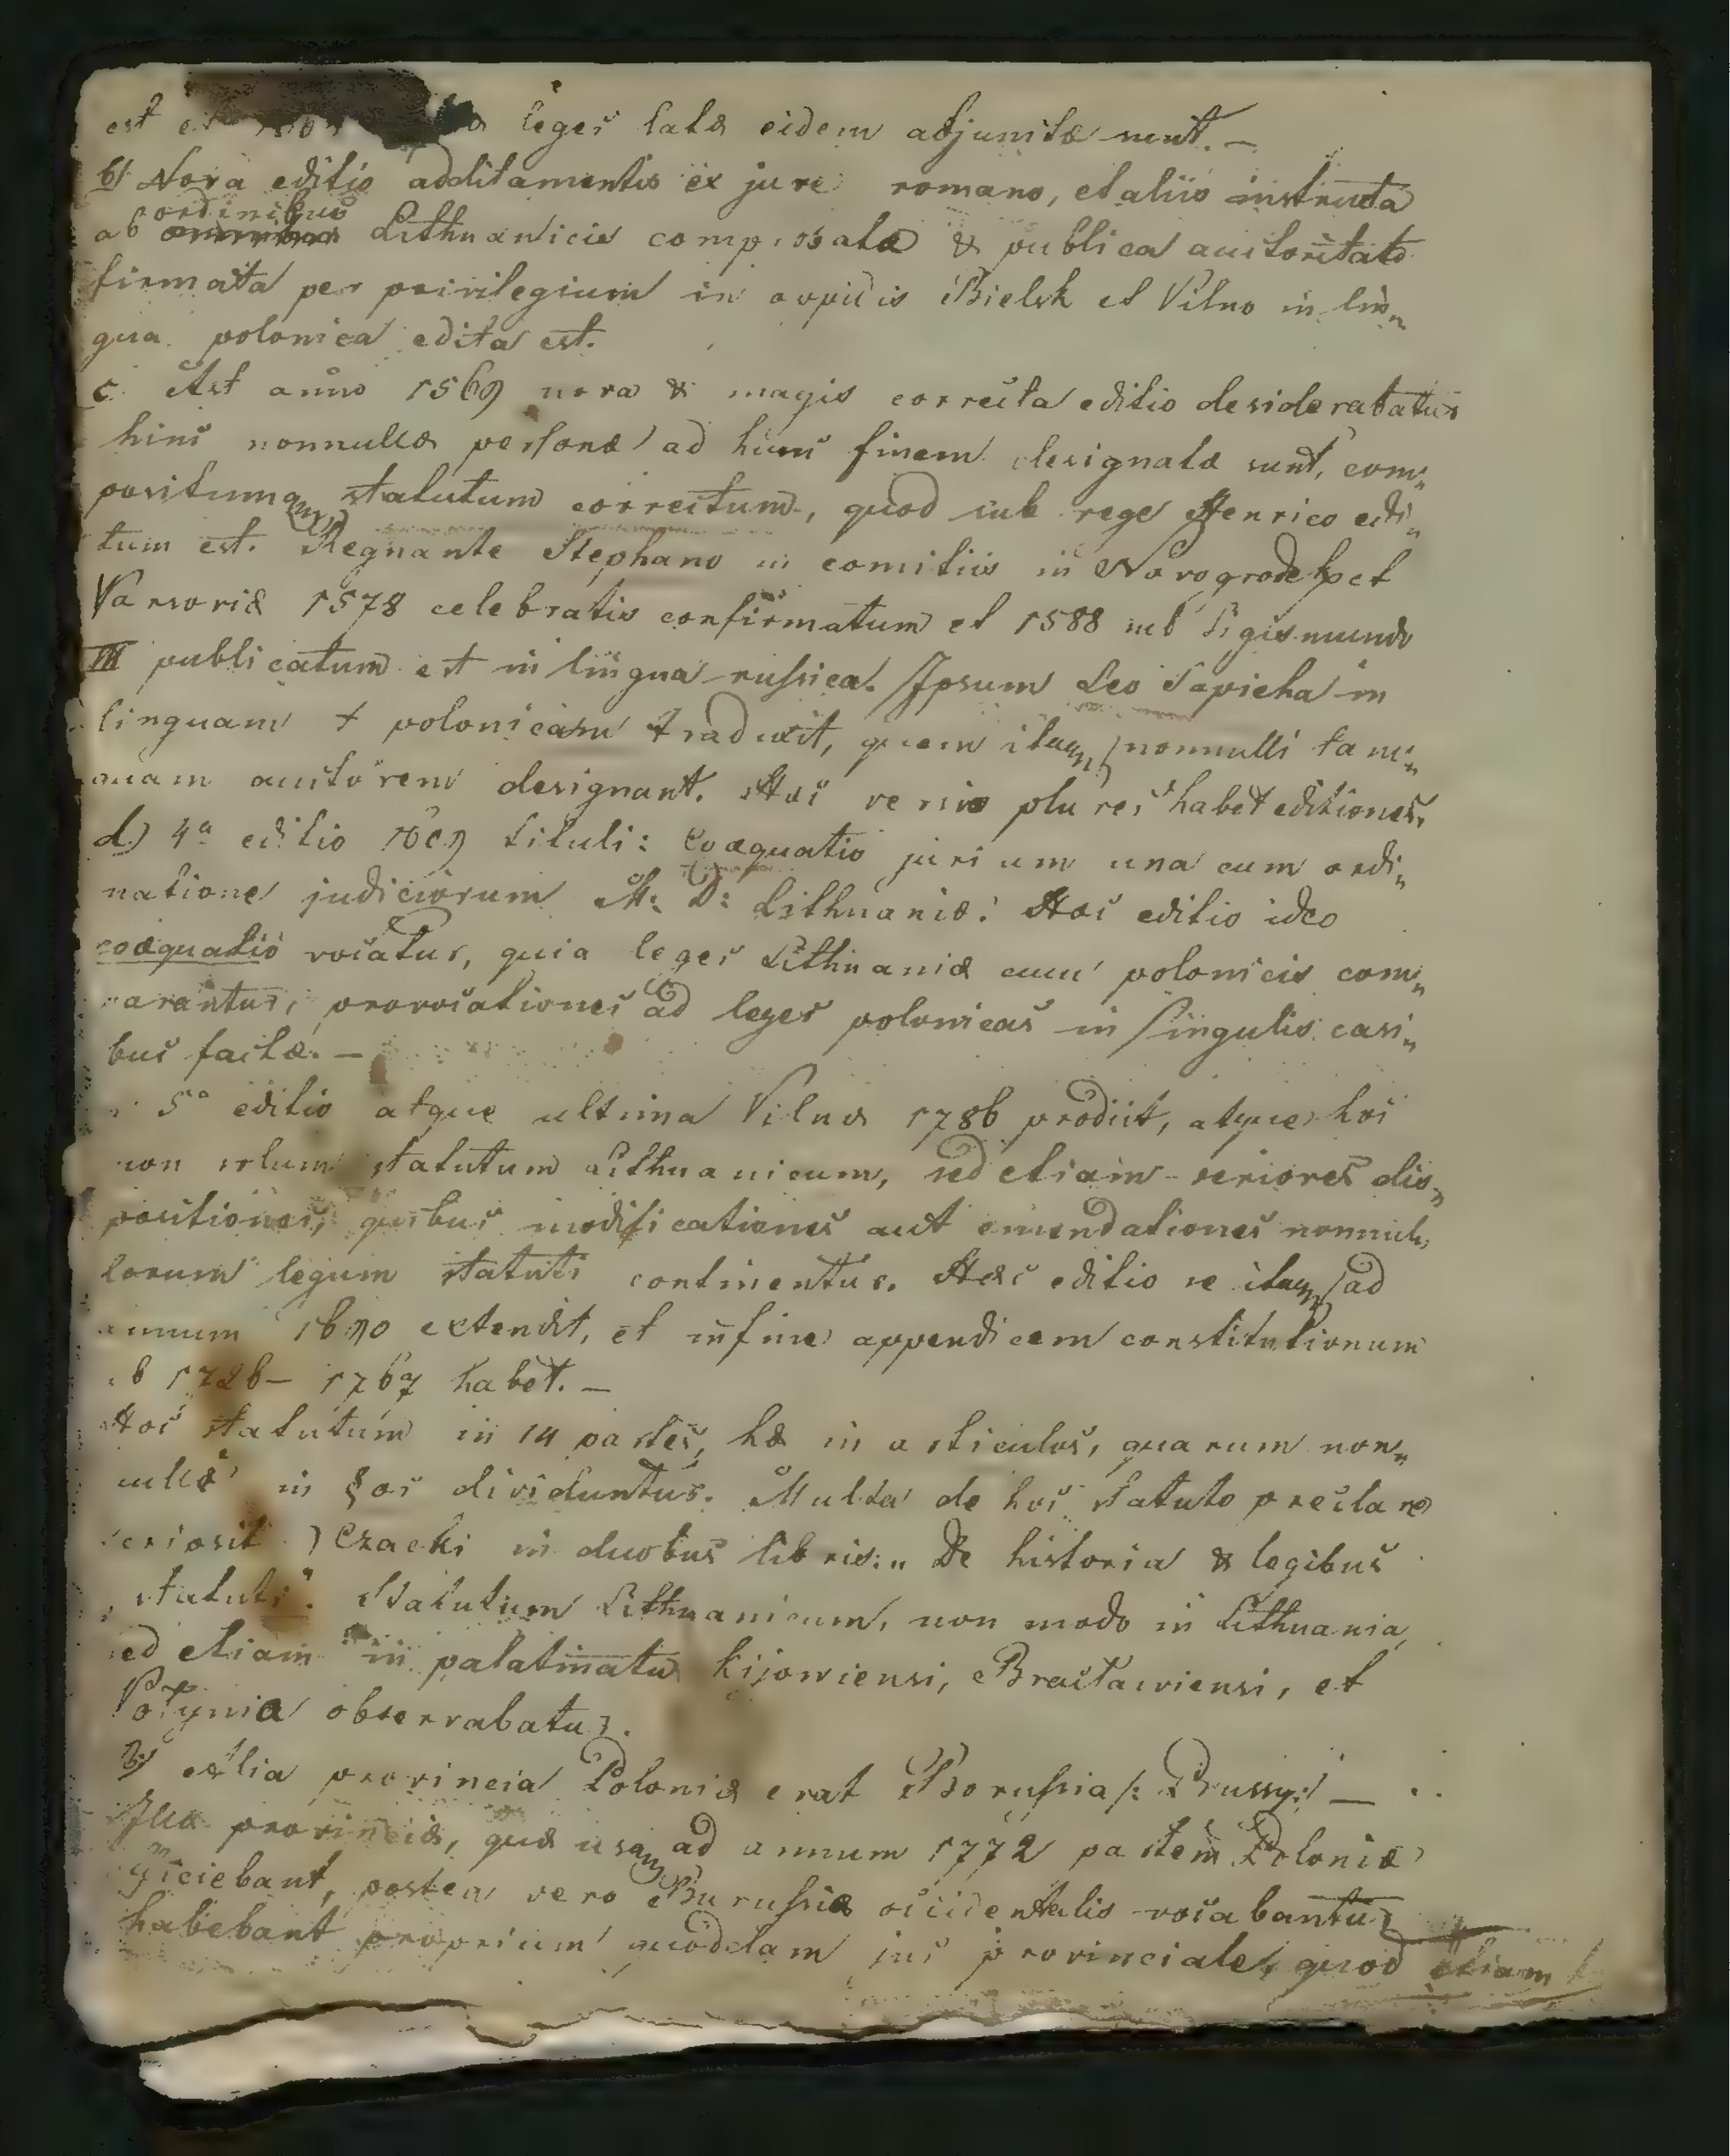 est leges latæ eidem adjunctæ sunt. –
b) Nova editio additamentis ex jure romano, et aliis instructa
ab ordinibus Lithuanicis composata & publica auctoritate
firmata per privilegium in oppidis Bielsk et Vilno in lin„
gua polonica edita est.
c. Ast anno 1569 nova & magis correcta editio desiderabatur
hinc nonnullæ personæ ad hunc finem designatæ sunt, com„
positumq statutum correctum, quod sub rege Henrico edi„
tum est. Regnante Stephano in comitiis in Novogrodek et
Varsoviæ 1578 celebratis confirmatum et 1588 sub Sigismundo
III publicatum est in lingua russica. Ipsum Leo Sapieha in
linguam + polonicam traduxit, quem itaq nonnulli tam„
quam auctorem designant. Hæc versio plures habet editiones.
d.) 4a editio tituli: Coæquatio jurium una cum ordi„
natione judiciorum M: D: Lithuaniæ: Hæc editio ideo
coæquatio vocatur, quia leges Lithuaniæ cum polonicis com„
parantur, provocationes ad leges polonicas in singulis casi„
bus factæ. –
5a editio atque ultima Vilnæ 1786 prodiit, atque hoc
non solum statutum Lithuanicum, sed etiam seriores dis„
positiones, quibus modificationes aut emendationes nonnul„
lorum legum statuti continentur. Hæc editio se itaq ad
annum 1690 extendit, et in fine appendicem constitutionum
ab 1726 – 1767 habet. –
Hoc statutum in 14 partes, hæ in articulos, quarum non„
nullæ in §os dividuntur. Multa de hoc statuto preclare
Czacki in duobus libris: „De historia & legibus
statuti". Statutum Lithuanicum, non modo in Lithuania,
sed etiam in palatinatu Kijowiensi, Braclawiensi, et
Volynia observabatur.
3) Alia provincia Poloniæ erat Borussia /: Prussy :/ –
Illæ provinciæ, quæ usq ad annum 1772 partem Poloniæ
efficiebant, postea vero Borussiæ occidentalis vocabantur
habebant proprium quoddam jus provinciale, quod etiam